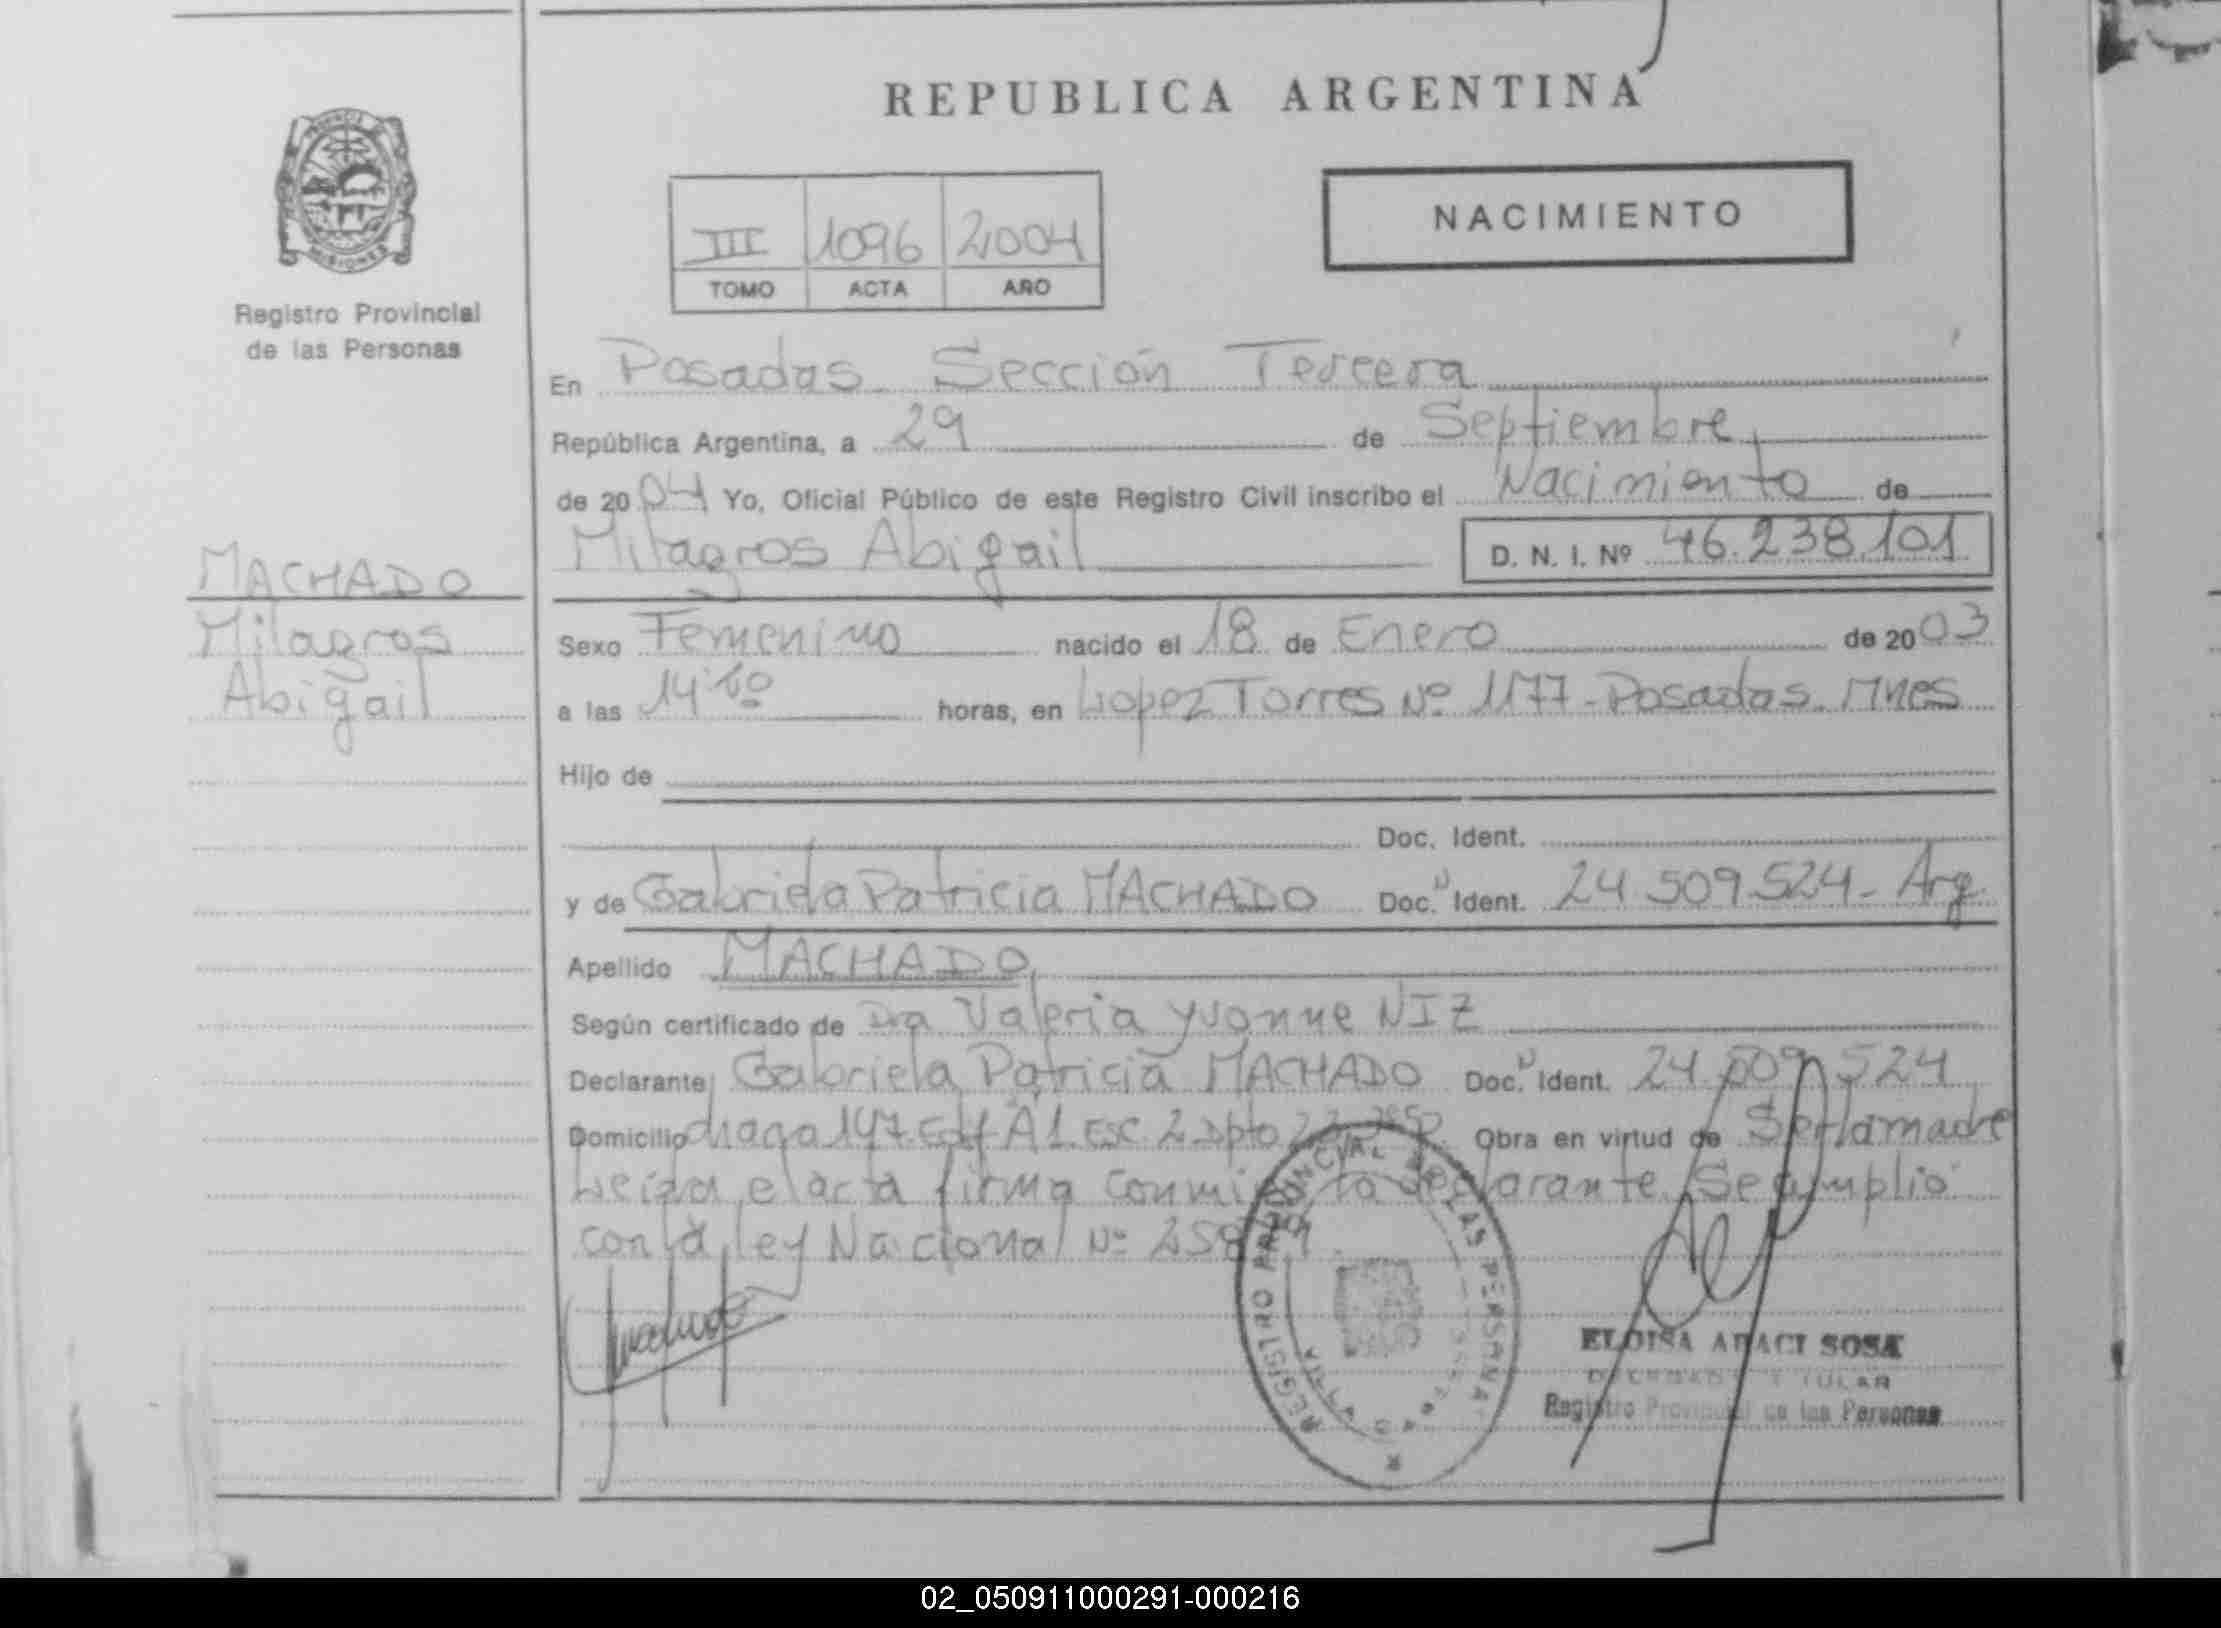 REPUBLICA ARGENTINA
NACIMIENTO
III 1096 2004
TOMO ACTA AÑO
Registro Provincial
de las Personas
MACHADO
Milagros
Abigail
En Posadas. Sección Tercera
República Argentina, a 29 de Septiembre
de 2004 Yo, Oficial Público de este Registro Civil inscribo el Nacimiento de
Milagros Abigail D. N. I. Nº 46.238.101
Sexo Femenino nacido el 18 de Enero de 2003
a las 14 horas, en Lopez Torres Nº 1177-Posadas. Mnes
Hijo de
Doc. Ident.
y de Gabriela Patricia MACHADO Doc. Ident. 24.509.524- Arg.
Apellido MACHADO
Según certificado de Dra Valeria Yvonne NIZ
Declarante Gabriela Patricia MACHADO Doc. Ident. 24.509.524
Domicilio chaga 147. Edif A1. Esc. 2 Dpto Obra en virtud de Ser la madre
Leida el acta firma conmigo la declarante. Se cumplio
con la ley Nacional Nº
REGISTRO PROVINCIAL DE LAS PERSONAS
ELOISA ARACI SOSA
TITULAR
Registro Provincial de las Personas
02_050911000291-000216